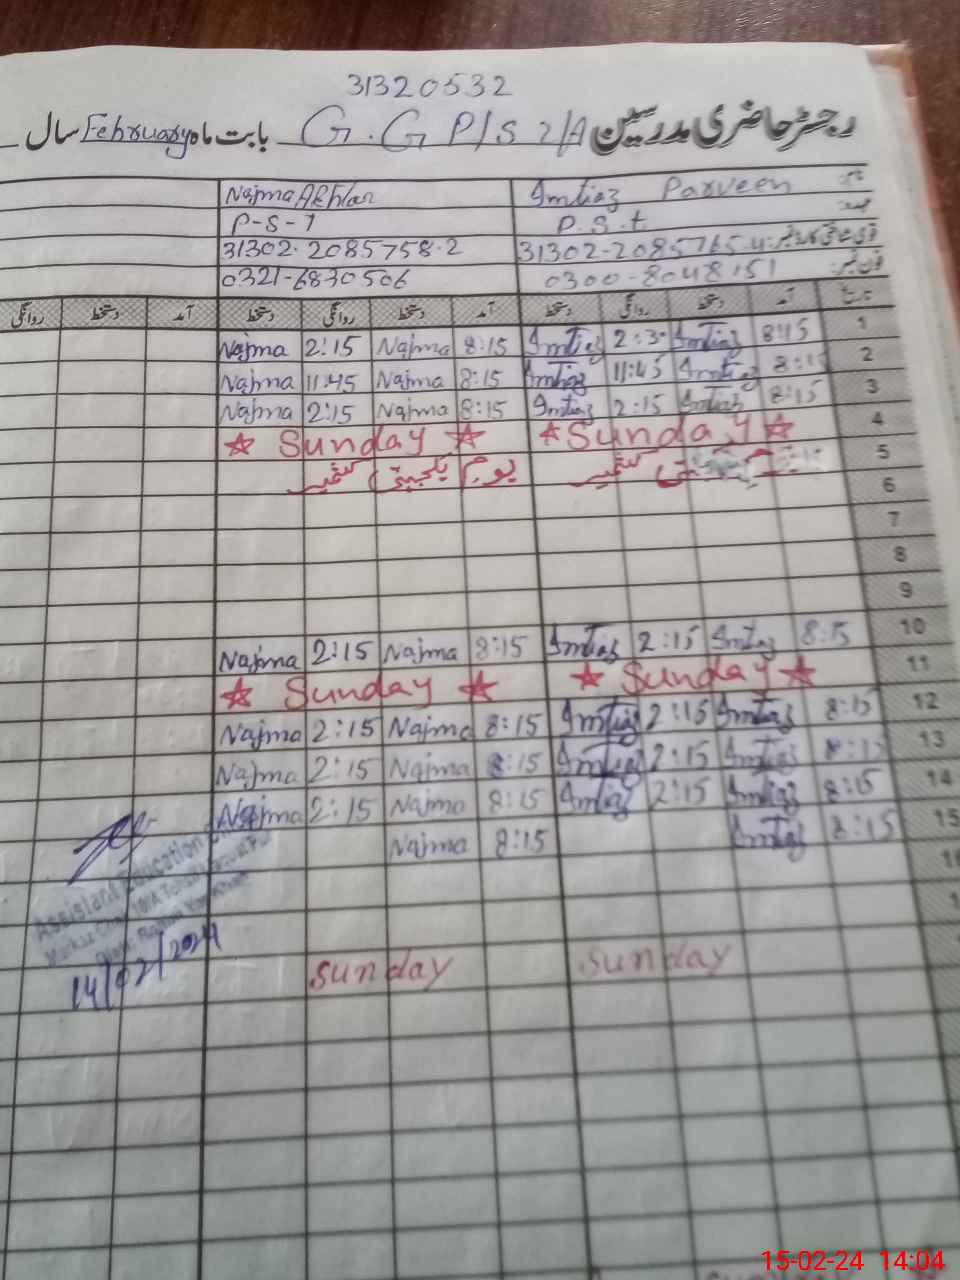 31320532
رجسٹر حاضری مدرسین G.G P/S 2/A بابت ماہ February سال
نام Imtiaz Parveen Najma Akhtar
عہدہ P.S.t P-S-T
قومی شناختی کارڈ نمبر: 31302-2085765-4 31302-2085758-2
فون نمبر: 0300-8048151 0321-6830506
تاریخ آمد دستخط روانگی دستخط آمد دستخط روانگی دستخط آمد دستخط روانگی
1 8:15 Imtiaz 2:30 Imtiaz 8:15 Najma 2:15 Najma
2 8:15 Imtiaz 11:45 Imtiaz 8:15 Najma 11:45 Najma
3 8:15 Imtiaz 2:15 Imtiaz 8:15 Najma 2:15 Najma
4 Sunday Sunday
5 یکجہتی کشمیر یوم یکجہتی کشمیر
6
7
8
9
10 8:15 Imtiaz 2:15 Imtiaz 8:15 Najma 2:15 Najma
11 Sunday Sunday
12 8:15 Imtiaz 2:15 Imtiaz 8:15 Najma 2:15 Najma
13 8:15 Imtiaz 2:15 Imtiaz 8:15 Najma 2:15 Najma
14 8:15 Imtiaz 2:15 Imtiaz 8:15 Najma 2:15 Najma
15 8:15 Imtiaz 8:15 Najma
Assistant Education
Markaz
14/02/2024
sunday sunday
15-02-24 14:04